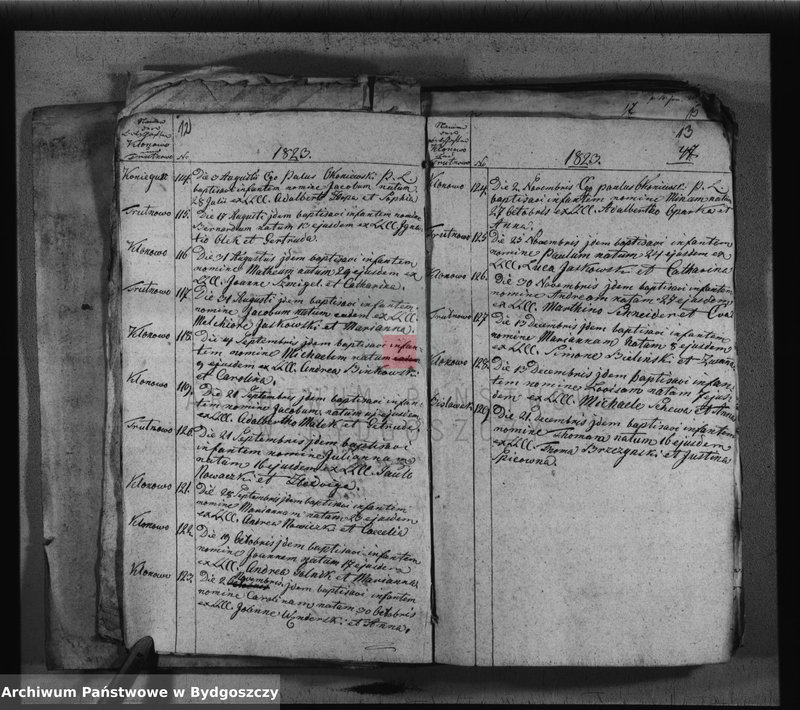 12
Klonowo
Trutnowo
No.
1823.
114. Die 3 Augusti Ego Paulus P. L.
baptisavi infantem nomine Jacobum natum
28 Julii ex LLll. Adalberto et Sophia
Trutnowo 115. Die 17 Augusti jdem baptisavi infantem nomine
Bernardum natum ejusdem ex LLll
et Gertruda.
Klonowo 116 Die 31 Augustus jdem baptisavi infantem
nomine Matheum natum 29 ejusdem ex
LLll. Joanne Szmigel et Catharina.
Trutnowo 117. Die 31 Augusti jdem baptisavi infantem
nomine Jacobum natum ex LLll
Melchiore Jaskowski et Marianna.
Klonowo 118. Die 14 Septembris jdem baptisavi infan-
tem nomine Michaelem natum
9 ejusdem ex LLll. Andrea Binkowski
et Carolina.
Klonowo 119. Die 20 Septembris jdem baptisavi infan-
tem nomine Jacobum natum ejusdem
ex LLll. Adalberto et Gertruda
Trutnowo 120. Die 21 Septembris jdem baptisavi
infantem nomine Juliannam
natam 16 ejusdem ex LLll. Paulo
Nowacki et Hedwige.
Klonowo 121. Die 28 Septembris jdem baptisavi infantem
nomine Mariannam natam ejusdem
ex LLll. Andrea et Caecilia
Klonowo 122. Die 19 Octobris jdem baptisavi infantem
nomine Joannem natum 17 ejusdem
ex LLll. Andrea et Marianna
Klonowo 123. Die 2 Novembris jdem baptisavi infantem
nomine Carolinam natam 30 Octobris
ex LLll. Joanne et Anna.
13
Klonowo
Trutnowo
No.
1823.
Klonowo 124. Die 2 Novembris Ego Paulus P. L
baptisavi infantem nomine natum
27 Octobris ex LLll. Adalberto et
Anna.
Trutnowo 125 Die 23 Novembris jdem baptisavi infantem
nomine Paulam natam 24 ejusdem ex
LLll. Luca Jaskowski et Catharina
Klonowo 126. Die 30 Novembris jdem baptisavi infantem
nomine Andream natum 27 ejusdem
ex LLll. Martino Schneider et Eva
Trutnowo 127 Die 13 Decembris jdem baptisavi infantem
nomine Mariannam natam 8 ejusdem
ex LLll. Simone Bilinski et
Klonowo 128. Die Decembris jdem baptisavi infan-
tem nomine natam 7 ejus-
dem ex LLll. Michaele et Anna
129 Die 21 Decembris jdem baptisavi infantem
nomine Thomam natum 16 ejusdem
ex LLll. Thoma Brzezynski et Justina
Archiwum Państwowe w Bydgoszczy